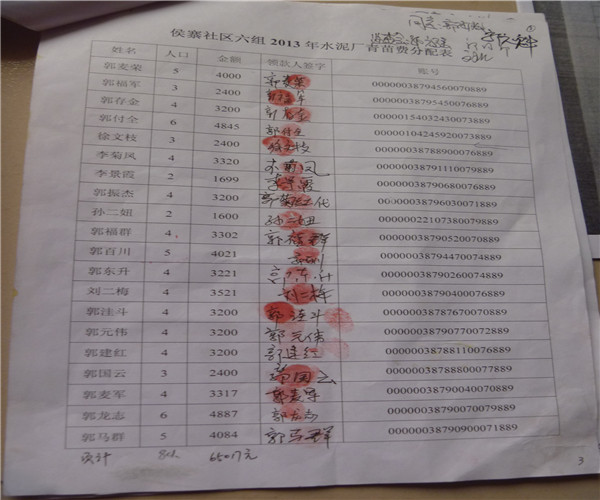 同意
①
侯寨社区六组2013年水泥厂青苗费分配表
姓名 人口 金额 领款人签字 账号
郭麦荣 5 4000 郭麦荣 00000038794560070889
郭福军 3 2400 郭福军 00000038795450076889
郭存金 4 3200 郭存金 00000154032430073889
郭付全 6 4845 郭付全 00000104245920073889
徐文枝 3 2400 徐文枝 00000038788900076889
李菊凤 4 3320 李菊凤 00000038791110079889
李景霞 2 1699 李景霞 00000038790680076889
郭振杰 4 3200 00000038796030071889
孙二妞 2 1600 孙二妞 00000022107380079889
郭福群 4 3302 郭福群 00000038790520070889
郭百川 5 4021 00000038794470074889
郭东升 4 3221 郭东升 00000038790260074889
刘二梅 4 3521 刘二梅 00000038790400076889
郭洼斗 4 3200 郭洼斗 00000038787670070889
郭元伟 4 3200 郭元伟 00000038790770072889
郭建红 4 3200 郭建红 00000038788110076889
郭国云 3 2400 郭国云 00000038788800077889
郭麦军 4 3317 郭麦军 00000038790040070889
郭龙志 6 4887 郭龙志 00000038790070079889
郭马群 5 4084 郭马群 00000038790900071889
页计 81人 65017元
3